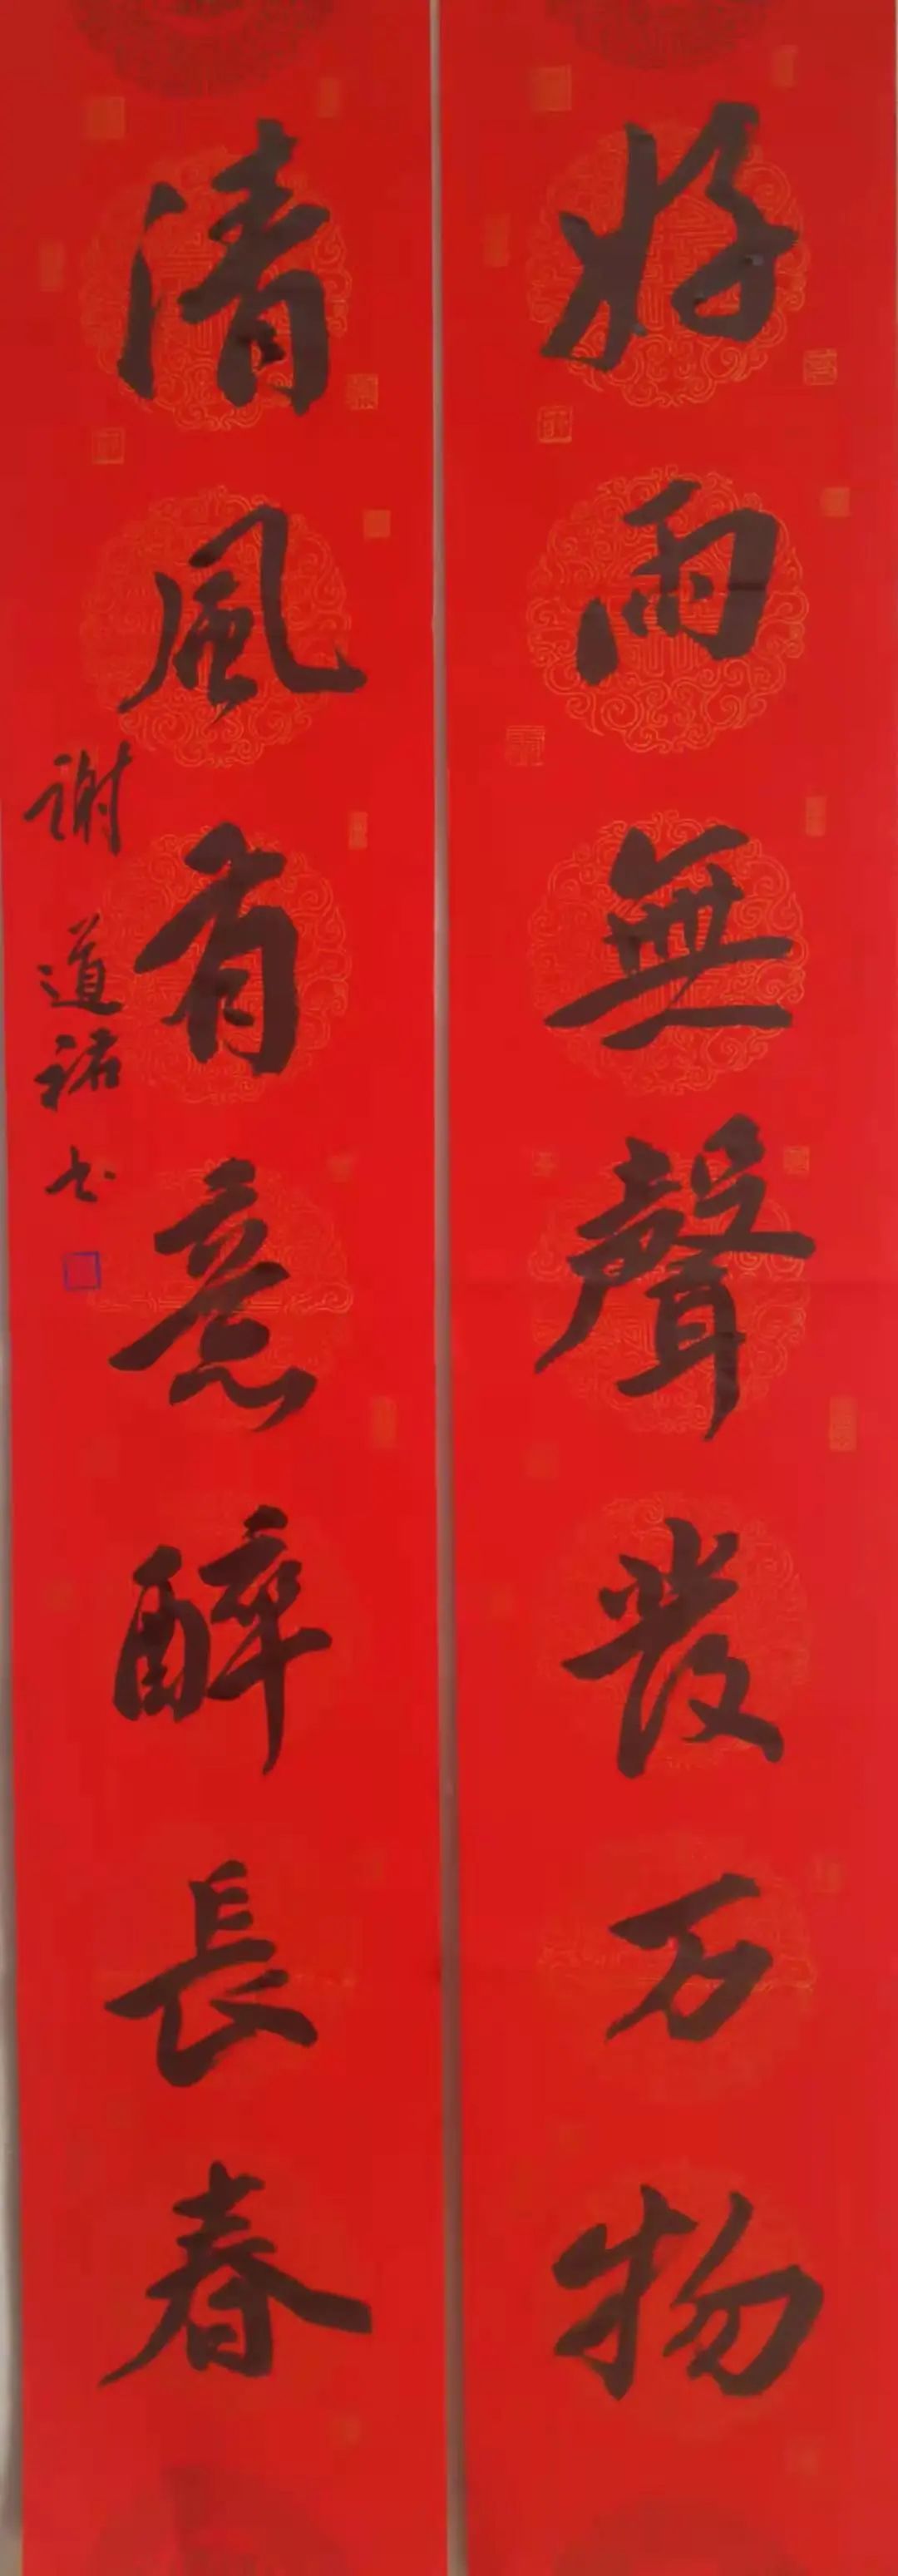 好雨無聲發万物
清風有意醉長春
謝道祐书